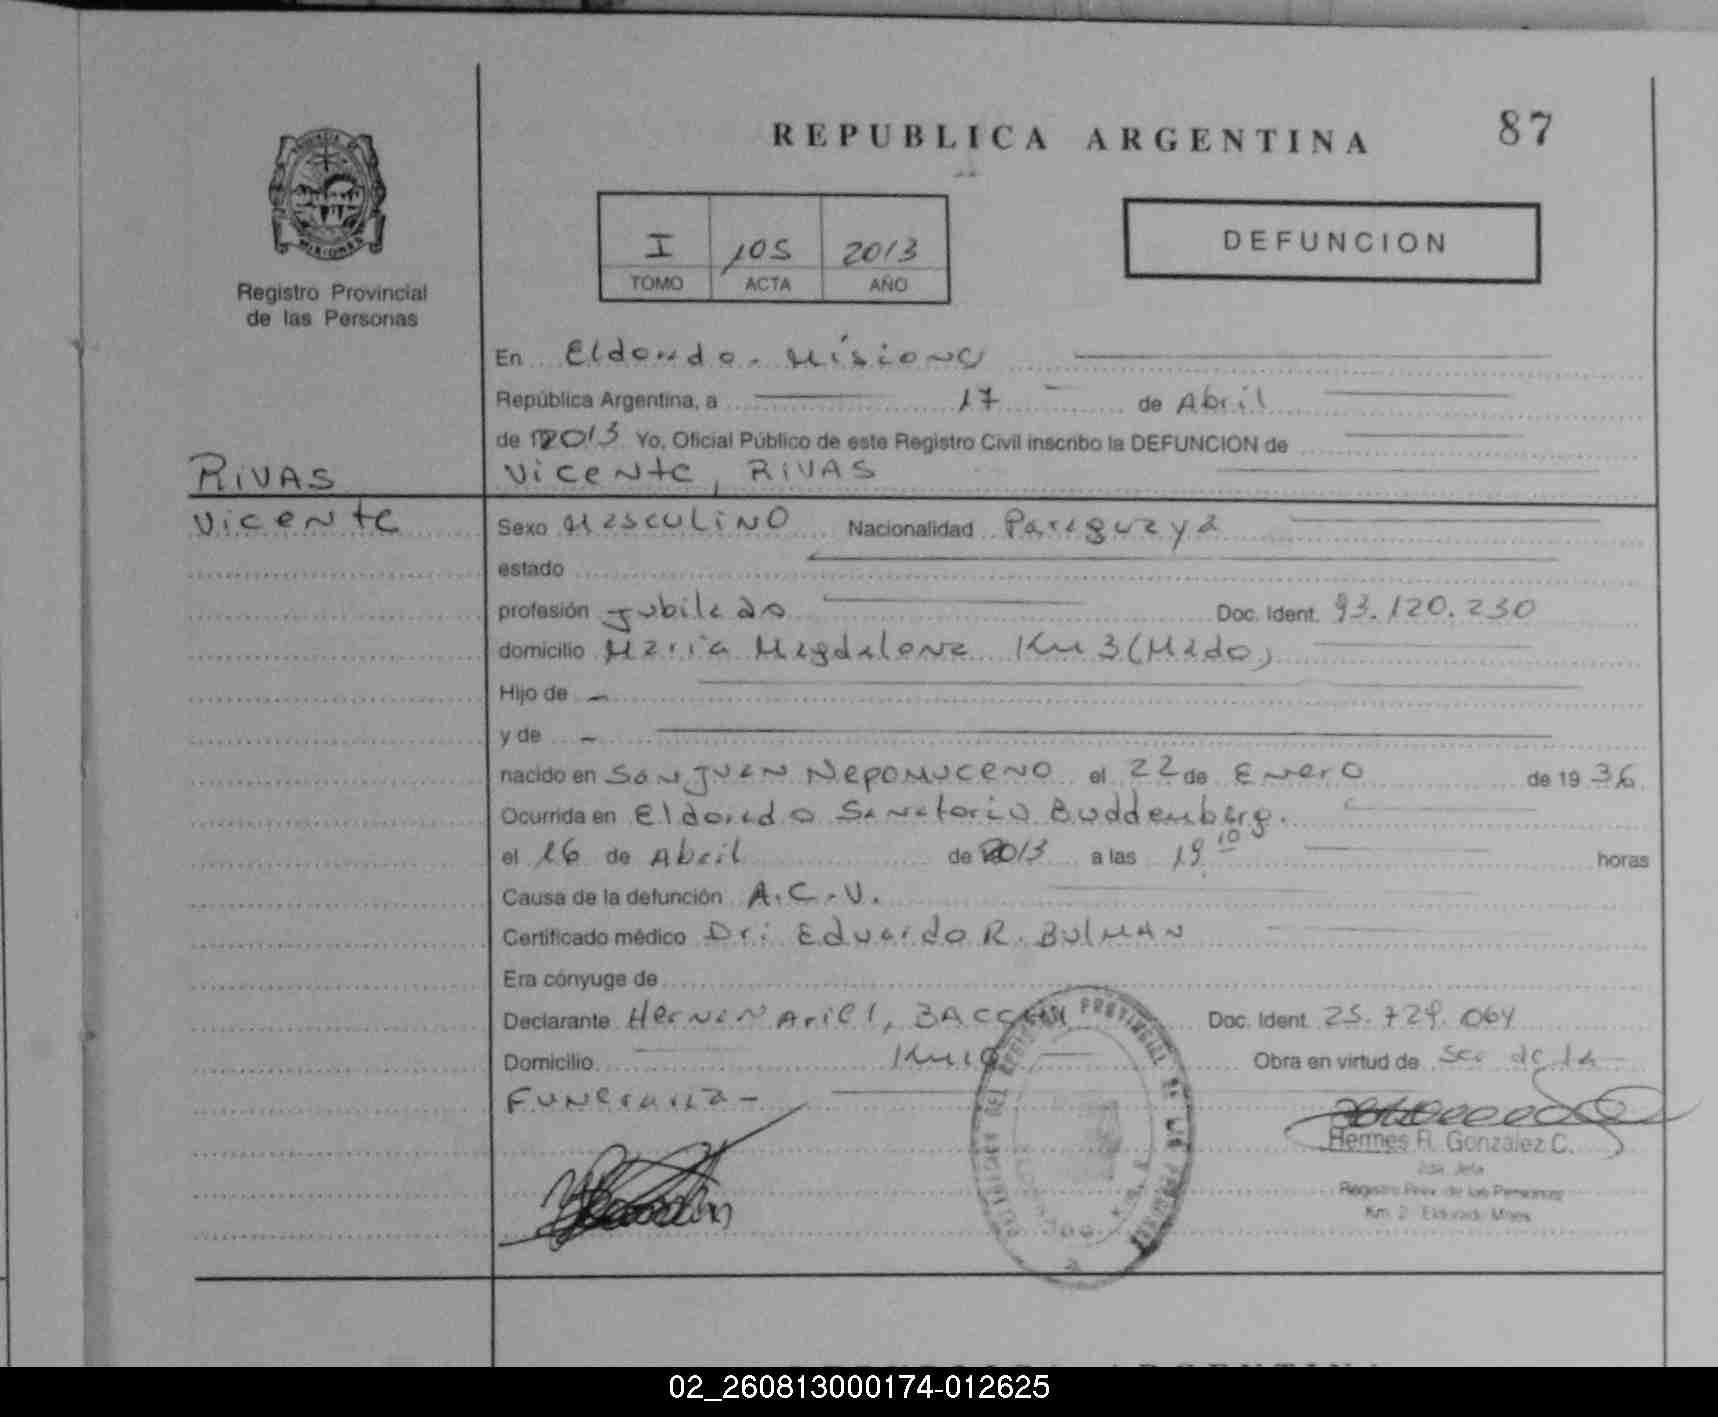 REPUBLICA ARGENTINA
87
Registro Provincial
de las Personas
I 105 2013
TOMO ACTA AÑO
DEFUNCION
En Eldorado - Misiones
República Argentina, a 17 de Abril
de 2013 Yo, Oficial Público de este Registro Civil inscribo la DEFUNCION de
RIVAS
Vicente, RIVAS
Vicente
Sexo Masculino Nacionalidad Paraguaya
estado
profesión Jubilado Doc. Ident. 93.120.230
domicilio Maria Magdalena Km 3 (Mado)
Hijo de -
y de -
nacido en San Juan Nepomuceno el 22 de Enero de 1936
Ocurrida en Eldorado Sanatorio Buddemberg.
el 16 de Abril de 2013 a las 19 10 horas
Causa de la defunción A.C.V.
Certificado médico Dr: Eduardo R. Bulman
Era cónyuge de
Declarante Hernan Ariel, Doc. Ident. 25.729.064
Domicilio Obra en virtud de Ser de la
Funeraria -
Hermes R. González C.
Registro Prov. de las Personas
Km. 2 Eldorado Mnes
02_260813000174-012625